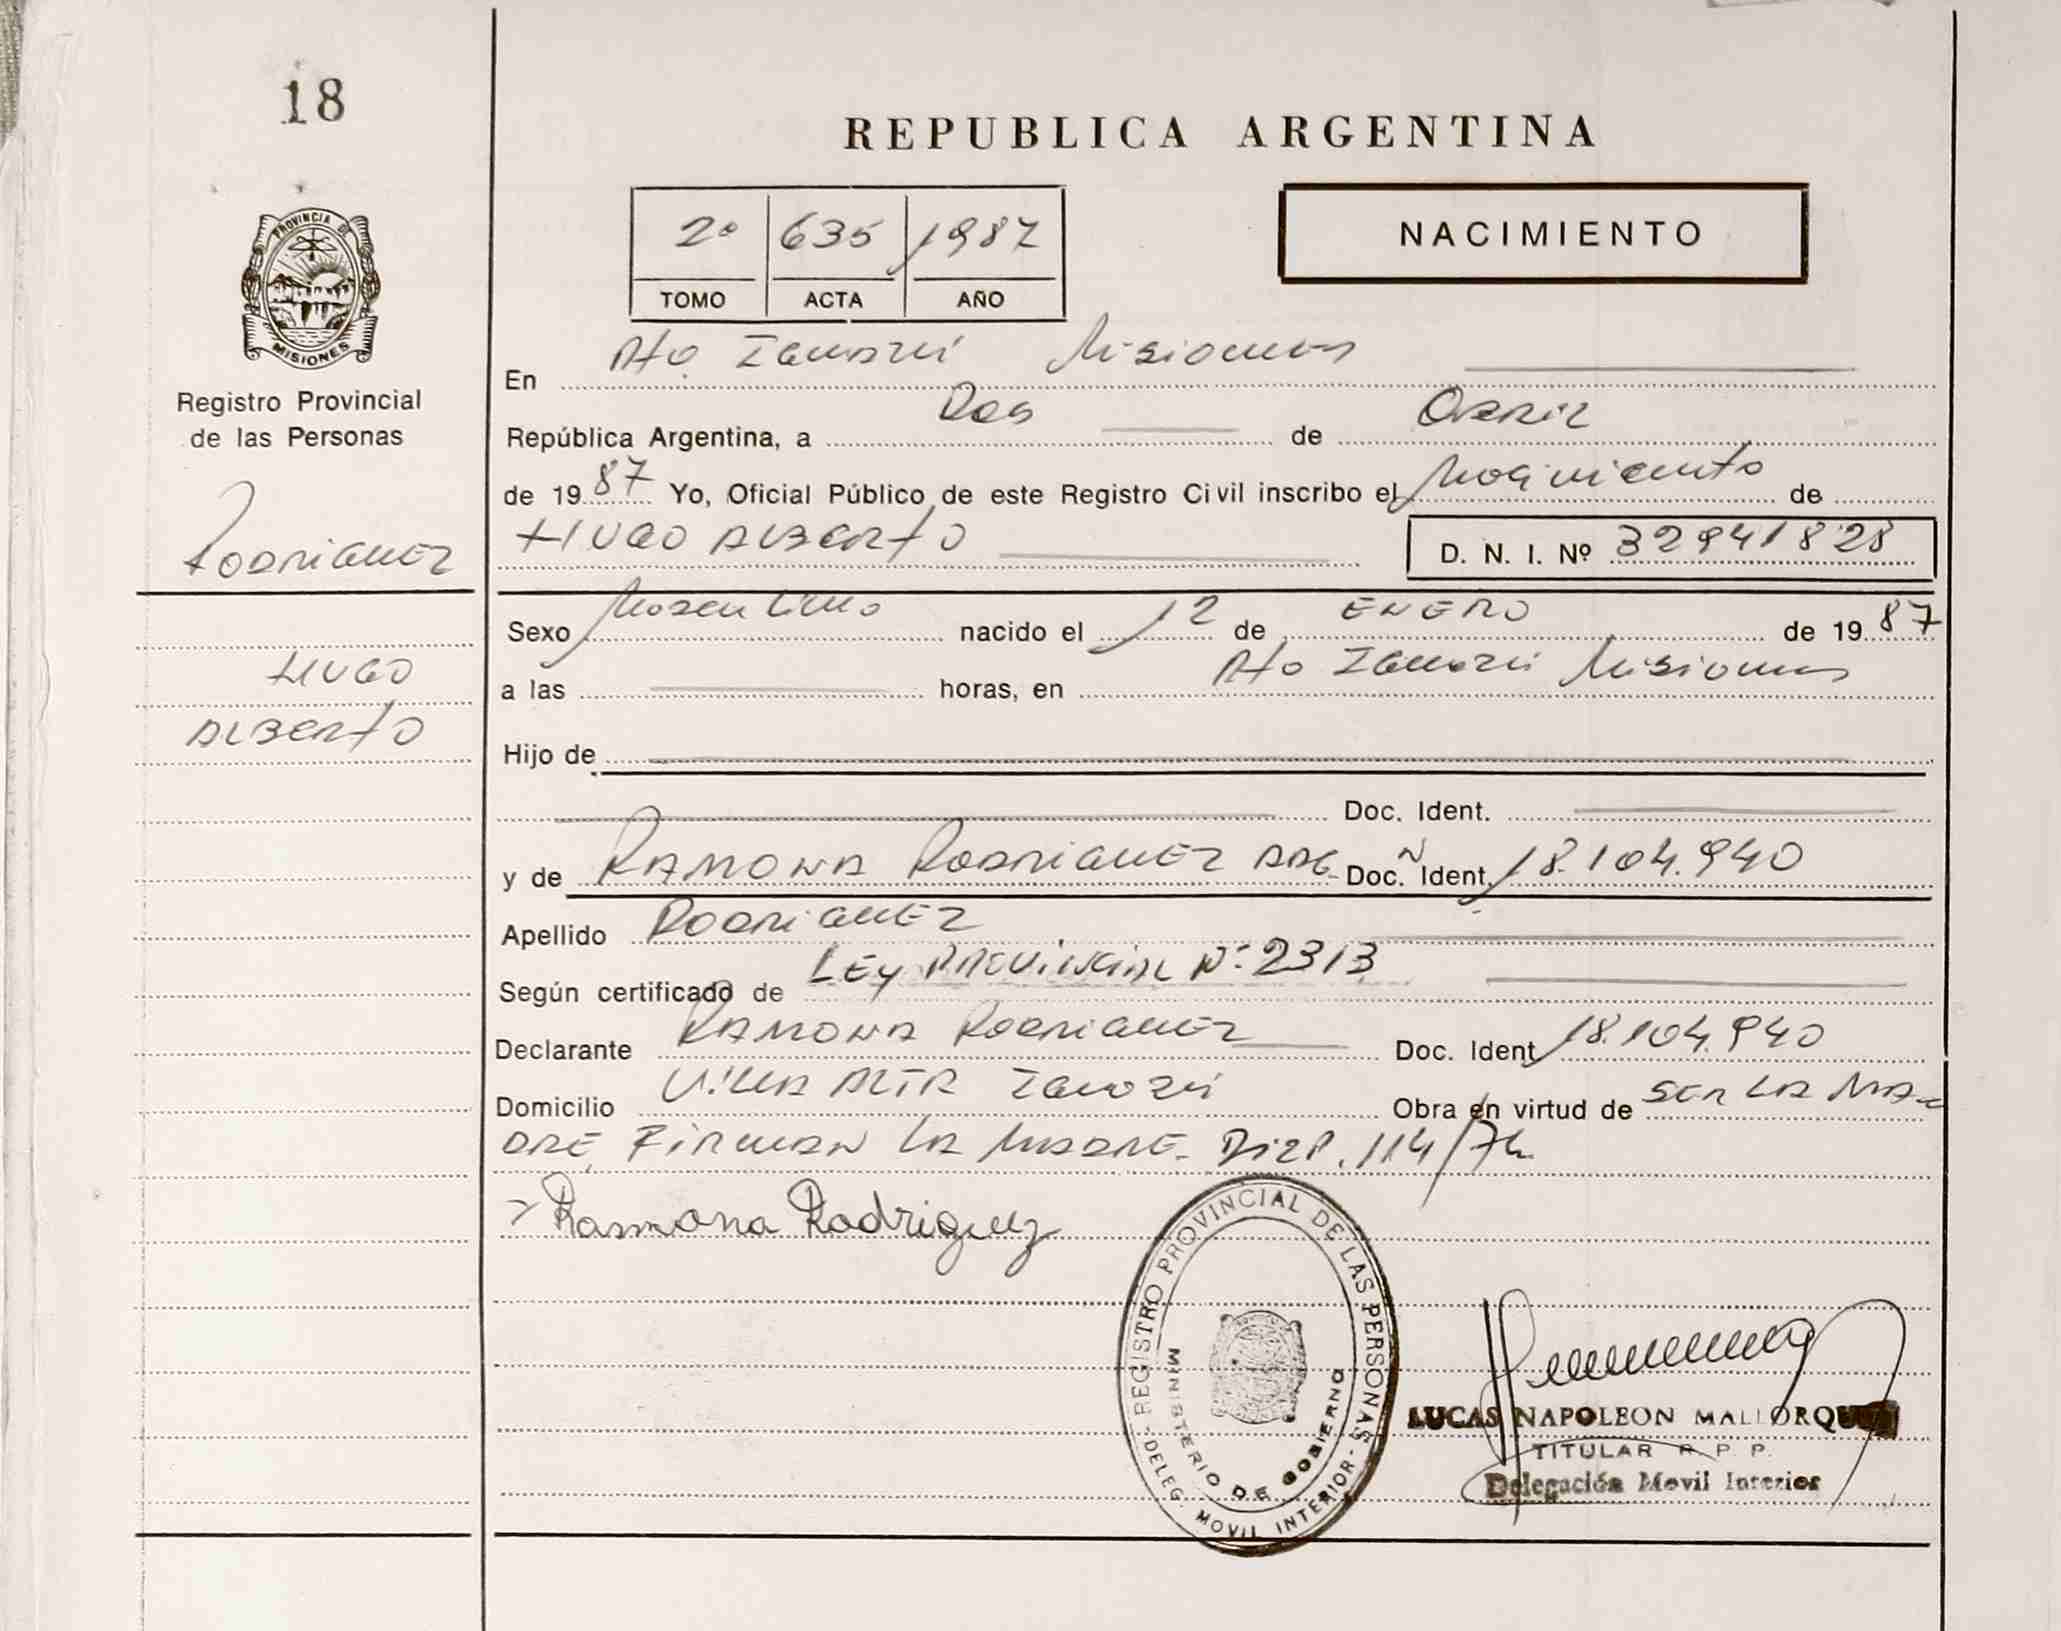 18
REPUBLICA ARGENTINA
PROVINCIA DE
MISIONES
2º 635 1987
TOMO ACTA AÑO
NACIMIENTO
Registro Provincial
de las Personas
En Pto. Iguazú Misiones
República Argentina, a Dos de Abril
de 1987 Yo, Oficial Público de este Registro Civil inscribo el Nacimiento de
Rodriguez
HUGO ALBERTO D. N. I. Nº 32941828
Sexo Masculino nacido el 12 de ENERO de 1987
HUGO
a las horas, en Pto Iguazú Misiones
ALBERTO
Hijo de
Doc. Ident.
y de RAMONA RODRIGUEZ ARG Doc. Ident. 18.104.940
Apellido RODRIGUEZ
Según certificado de LEY PROVINCIAL Nº 2313
Declarante RAMONA RODRIGUEZ Doc. Ident 18.104.940
Domicilio VILLA ALTA Iguazú Obra en virtud de SER LA MA-
DRE. FIRMAN LA MADRE- Disp. 114/74
Ramona Rodriguez
REGISTRO PROVINCIAL DE LAS PERSONAS
MINISTERIO DE GOBIERNO
-DELEG MOVIL INTERIOR-
LUCAS NAPOLEON
TITULAR R. P. P.
Delegación Movil Interior